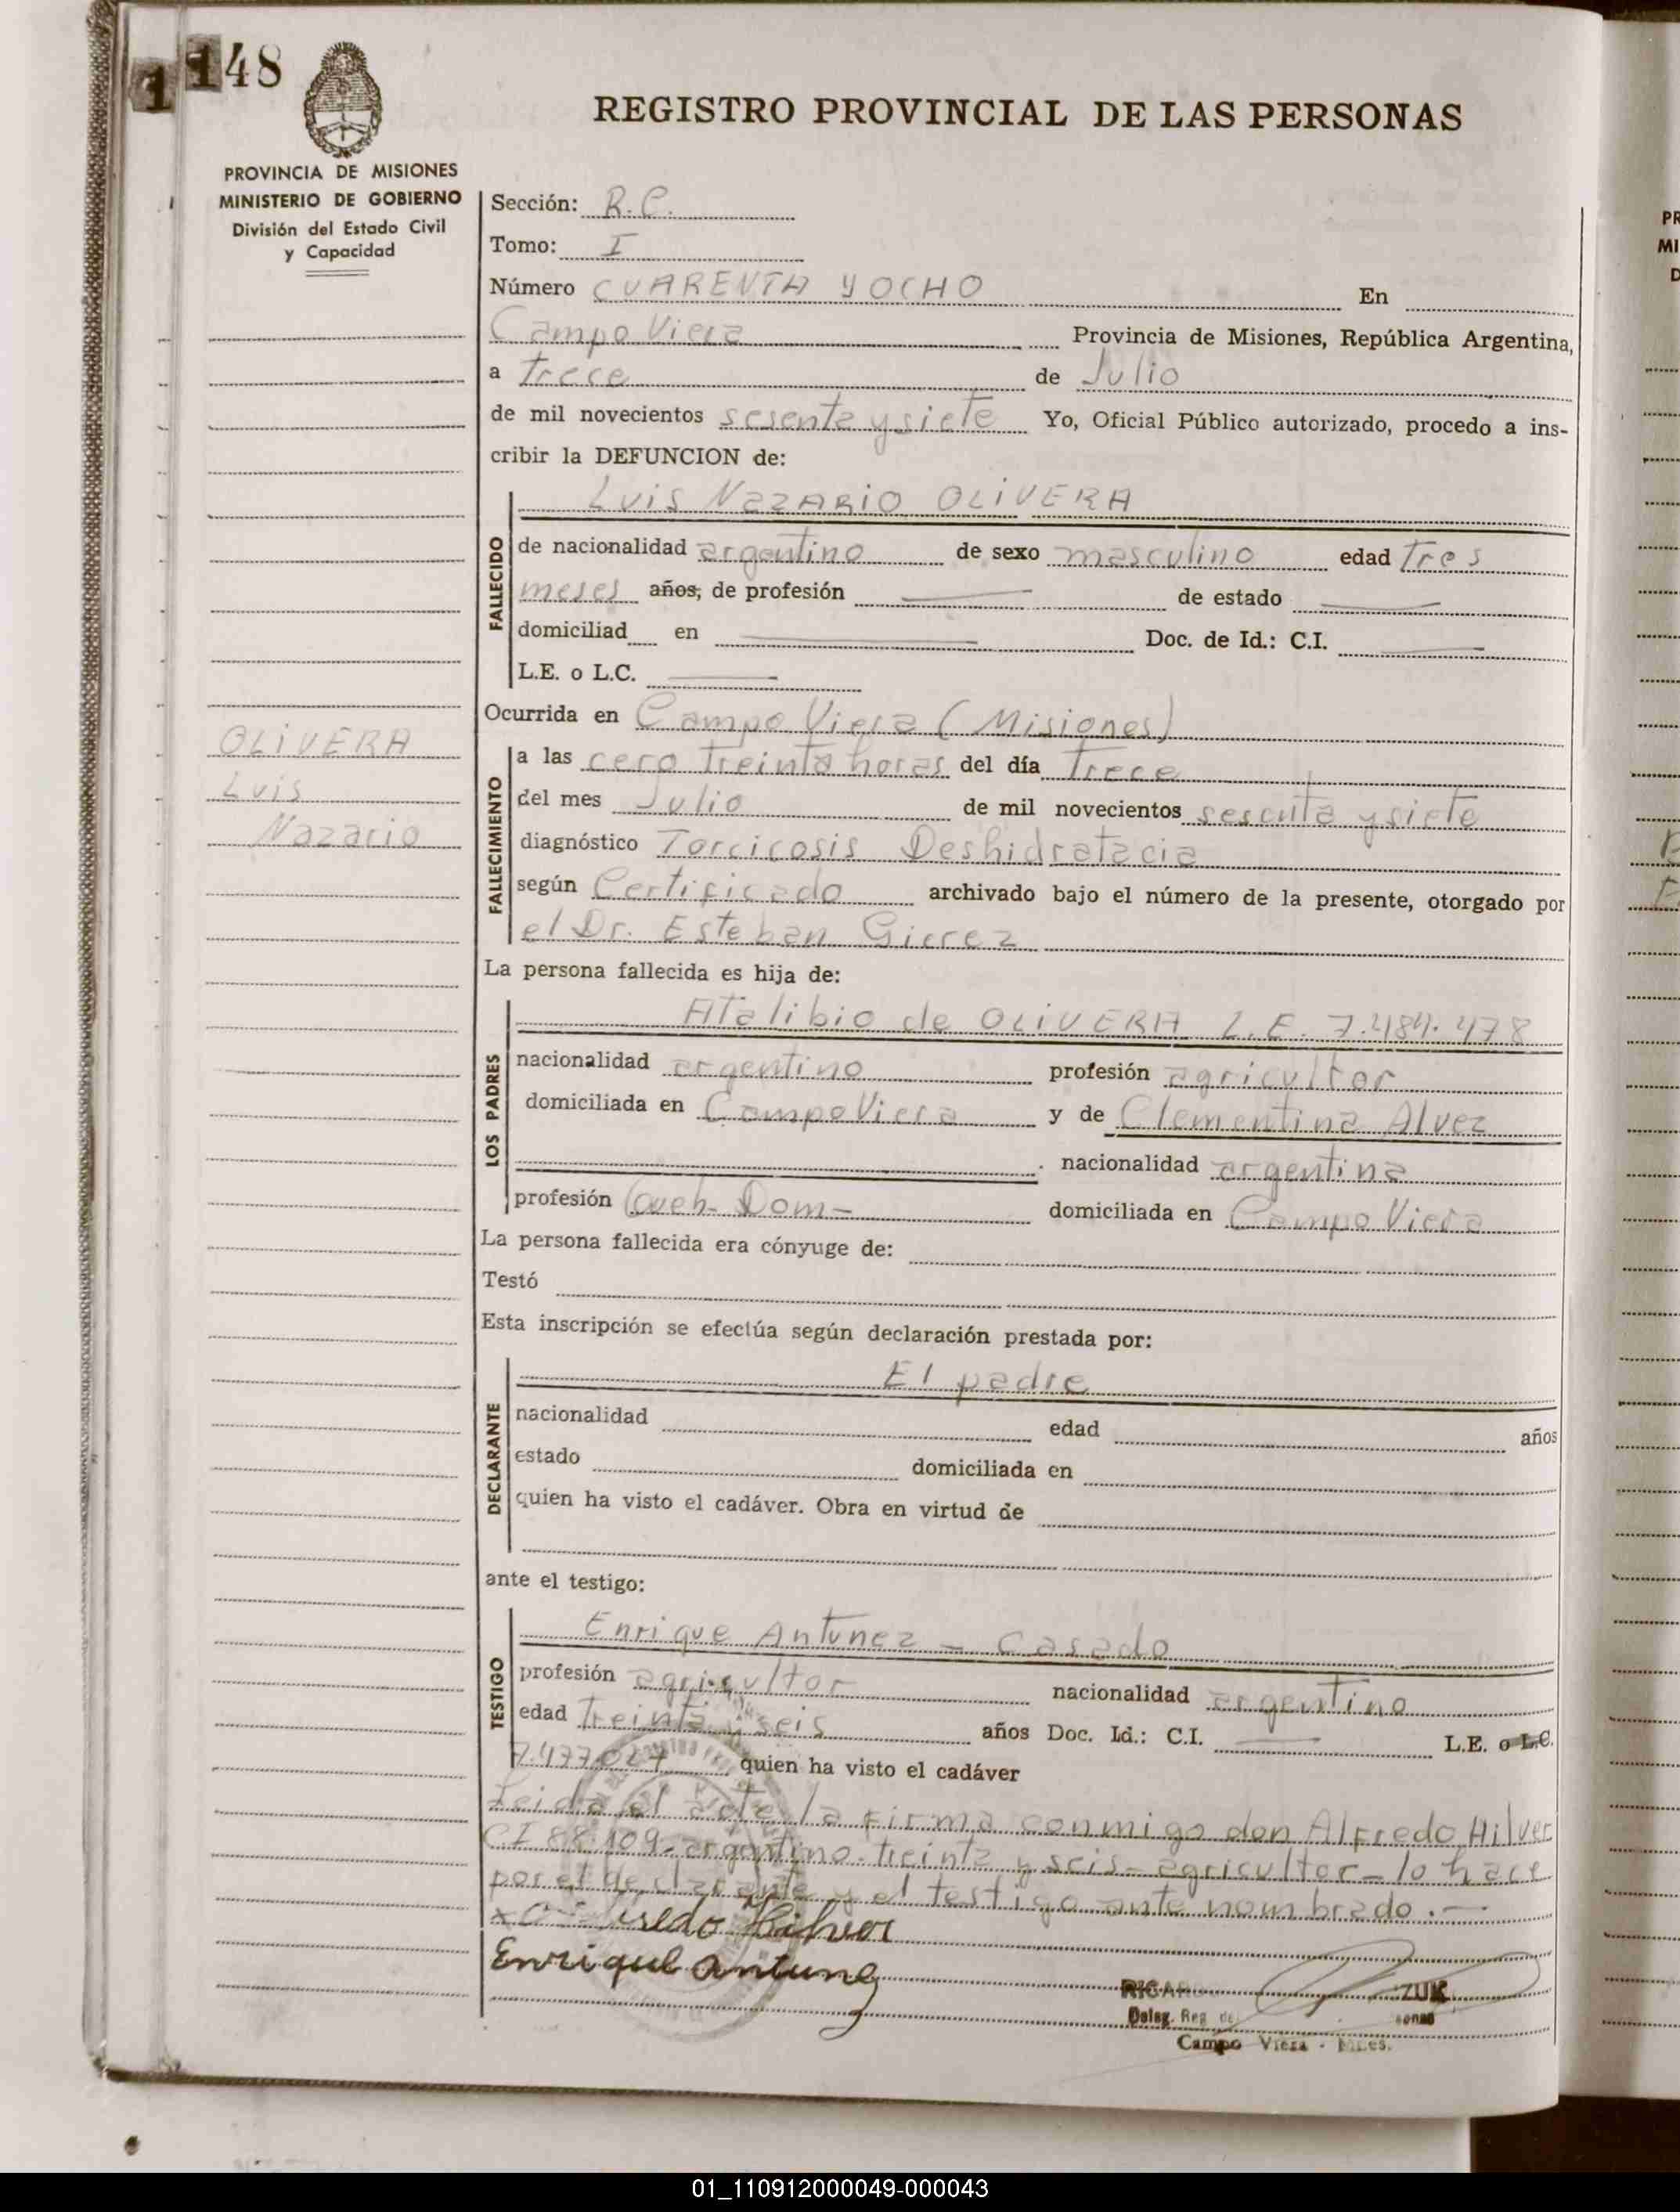 148
1
REGISTRO PROVINCIAL DE LAS PERSONAS
PROVINCIA DE MISIONES
MINISTERIO DE GOBIERNO
División del Estado Civil
y Capacidad
Sección: R.C.
Tomo: I
Número CUARENTA Y OCHO En
Campo Viera Provincia de Misiones, República Argentina,
a Trece de Julio
de mil novecientos sesenta y siete Yo, Oficial Público autorizado, procedo a ins-
cribir la DEFUNCION de:
LUIS NAZARIO OLIVERA
FALLECIDO
de nacionalidad argentino de sexo masculino edad Tres
meses años, de profesión de estado
domiciliad en Doc. de Id.: C.I.
L.E. o L.C.
Ocurrida en Campo Viera (Misiones)
OLIVERA
Luis
Nazario
FALLECIMIENTO
a las cero Treinta horas del día Trece
del mes Julio de mil novecientos sesenta y siete
diagnóstico Deshidratacia
según Certificado archivado bajo el número de la presente, otorgado por
el Dr. Esteban
La persona fallecida es hija de:
LOS PADRES
Atalibio de OLIVERA L.E. 7.484.478
nacionalidad argentino profesión agricultor
domiciliada en Campo Viera y de Clementina Alvez
nacionalidad argentina
profesión Dom- domiciliada en Campo Viera
La persona fallecida era cónyuge de:
Testó
Esta inscripción se efectúa según declaración prestada por:
DECLARANTE
El padre
nacionalidad edad años
estado domiciliada en
quien ha visto el cadáver. Obra en virtud de
ante el testigo:
TESTIGO
Enrique Antunez - Casado
profesión agricultor nacionalidad argentino
edad Treinta y seis años Doc. Id.: C.I. L.E. o L.C.
7.477.027 quien ha visto el cadáver
Leida el acta la firma conmigo don Alfredo Hilver
CI 88.109 argentino-treinta y seis-agricultor-lo hace
por el declarante y el testigo ante nombrado.-
Enrique Antunez
RICARDO ZUK
Deleg. Reg. de
Campo Viera - Mnes.
01_110912000049-000043